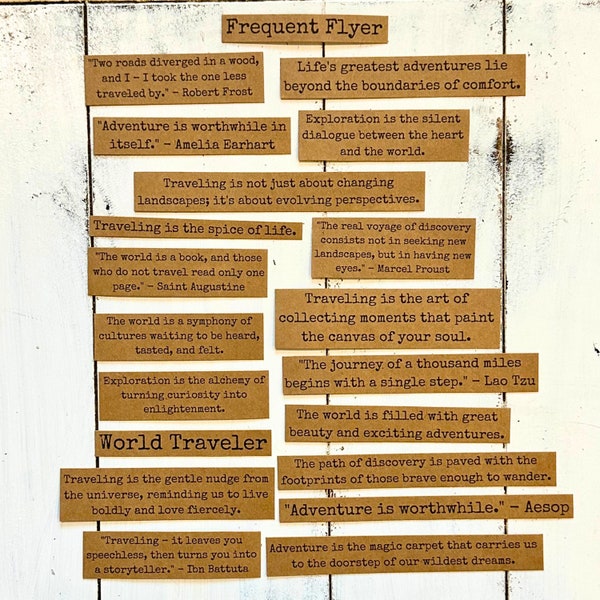 Frequent Flyer
"Two roads diverged in a wood,
and I - I took the one less
traveled by." - Robert Frost
Life's greatest adventures lie
beyond the boundaries of comfort.
"Adventure is worthwhile in
itself." - Amelia Earhart
Exploration is the silent
dialogue between the heart
and the world.
Traveling is not just about changing
landscapes; it's about evolving perspectives.
Traveling is the spice of life.
"The real voyage of discovery
consists not in seeking new
landscapes, but in having new
eyes." - Marcel Proust
"The world is a book, and those
who do not travel read only one
page." - Saint Augustine
Traveling is the art of
collecting moments that paint
the canvas of your soul.
The world is a symphony of
cultures waiting to be heard,
tasted, and felt.
"The journey of a thousand miles
begins with a single step." - Lao Tzu
Exploration is the alchemy of
turning curiosity into
enlightenment.
The world is filled with great
beauty and exciting adventures.
World Traveler
The path of discovery is paved with the
footprints of those brave enough to wander.
Traveling is the gentle nudge from
the universe, reminding us to live
boldly and love fiercely.
"Adventure is worthwhile." - Aesop
"Traveling - it leaves you
speechless, then turns you into
a storyteller." - Ibn Battuta
Adventure is the magic carpet that carries us
to the doorstep of our wildest dreams.